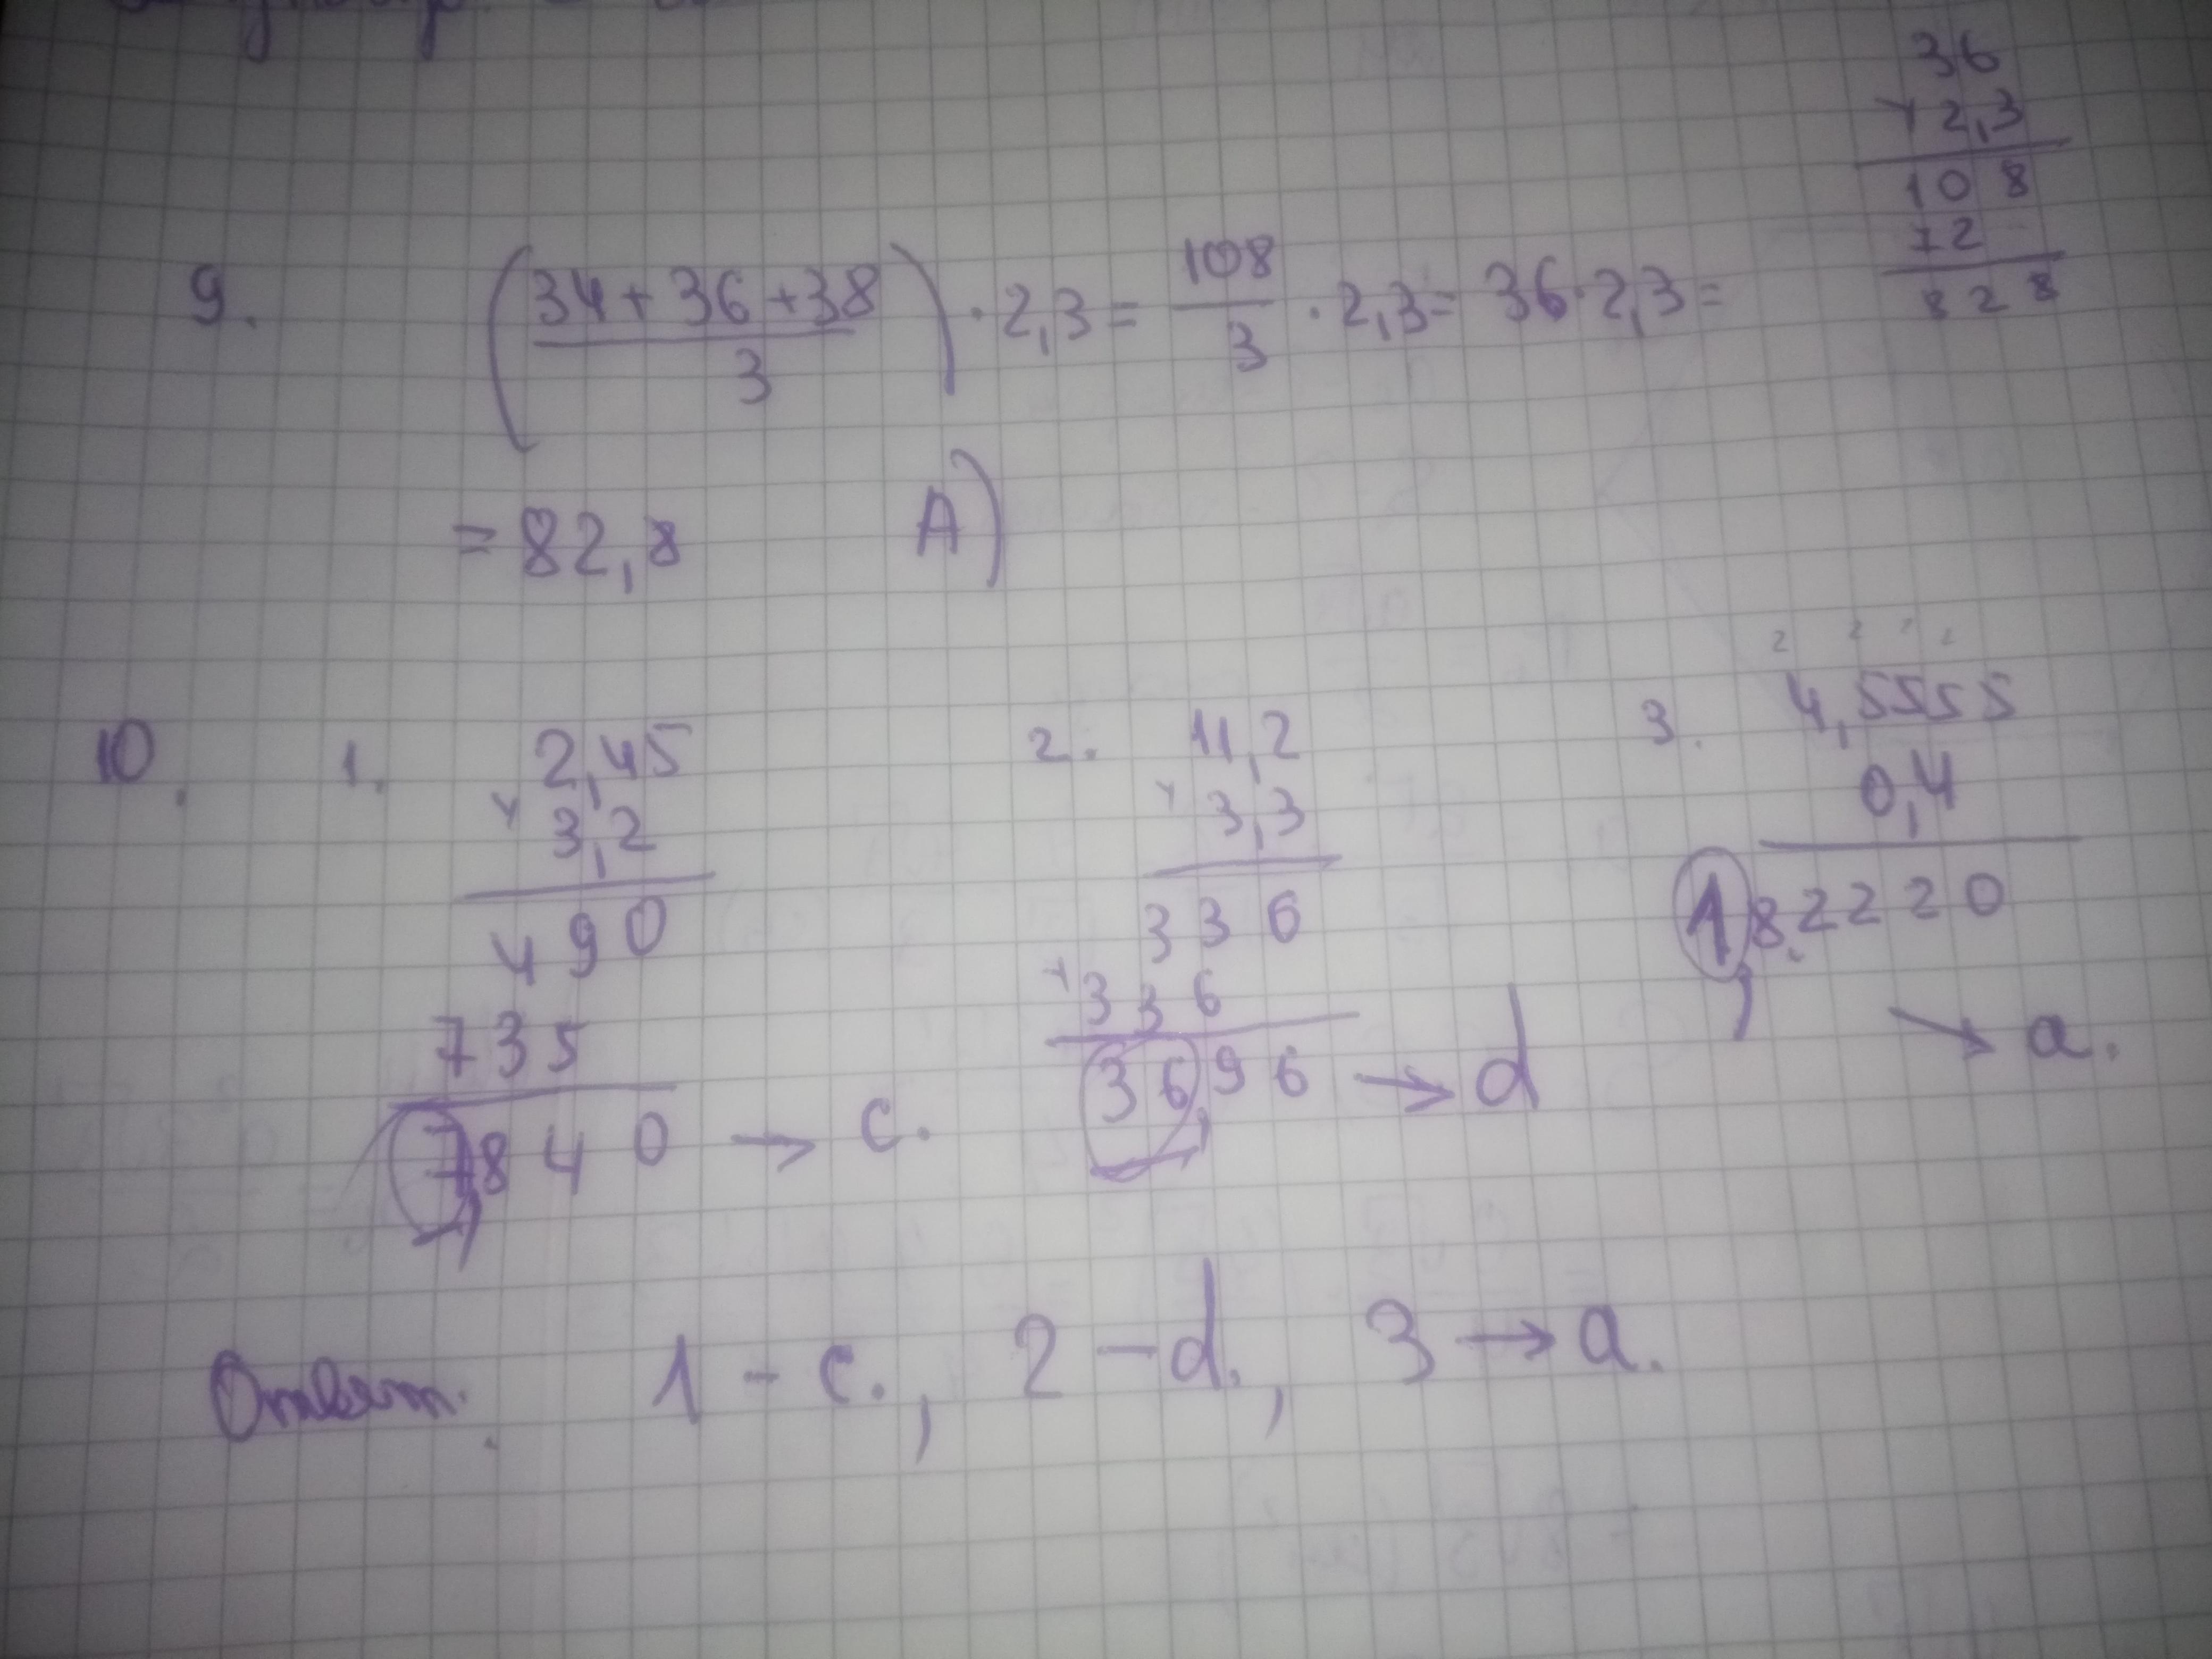 36
× 2,3
108
72
828
9. (34 + 36 + 38 / 3) · 2,3 = 108/3 · 2,3 = 36 · 2,3 =
= 82,8 A)
10. 1. 2,45
× 3,2
490
735
7,840 → c.
2. 11,2
× 3,3
336
+ 336
36,96 → d
3. 2 2 2 2
4,5555
0,4
1,82220
→ a.
Ответ: 1 - c., 2 - d., 3 → a.